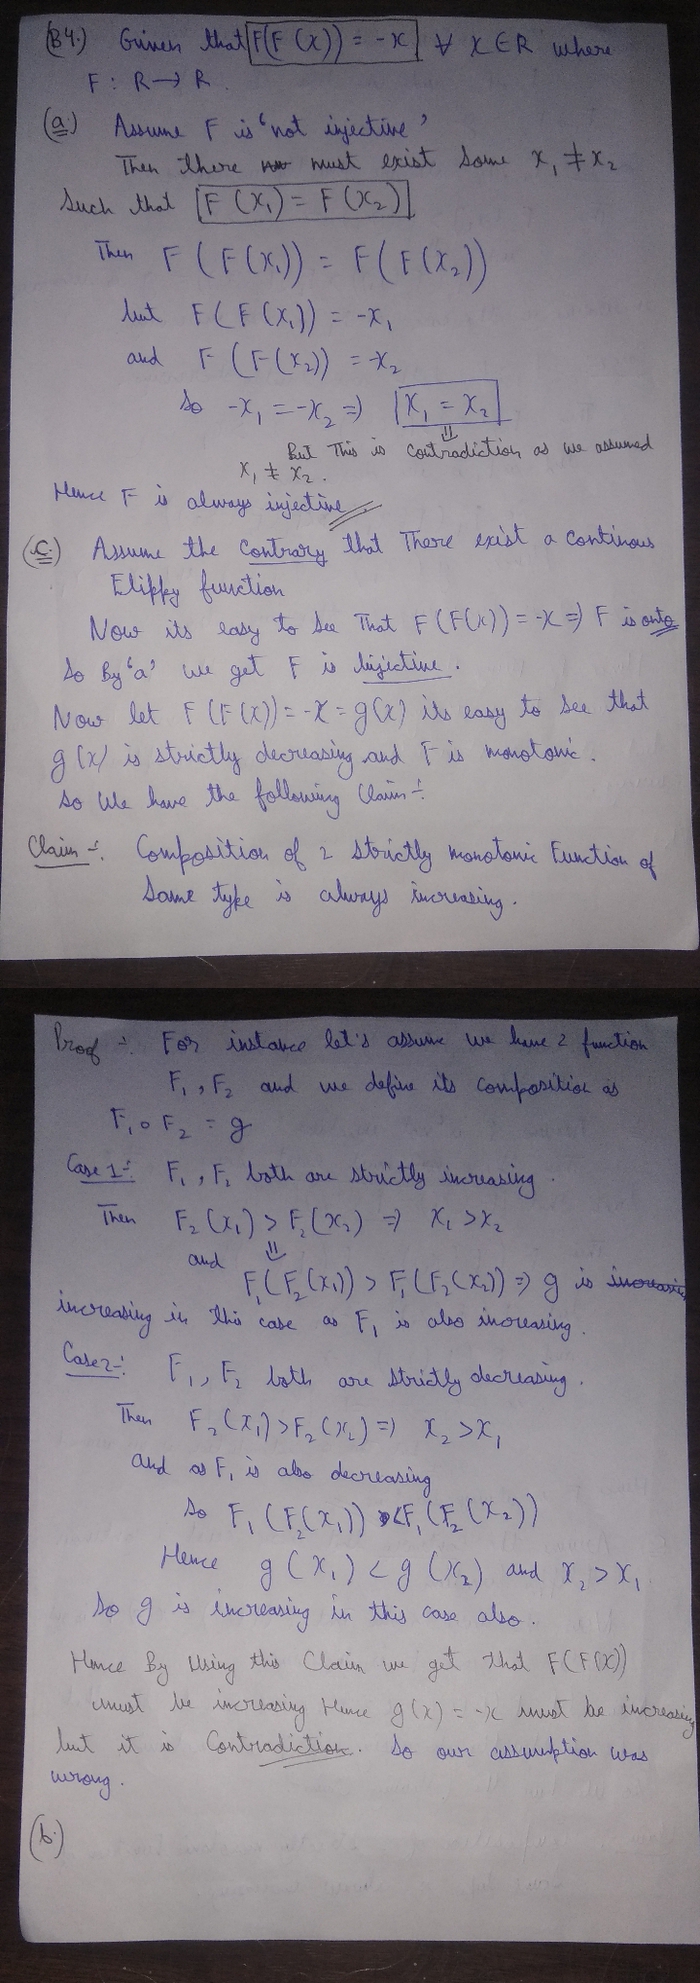 (B4.) Given that F(F(x)) = -x ∀ x ∈ R where
F : R → R.
(a.) Assume F is 'not injective'
Then there must exist some x₁ ≠ x₂
such that F(x₁) = F(x₂)
Then F(F(x₁)) = F(F(x₂))
but F(F(x₁)) = -x₁
and F(F(x₂)) = -x₂
So -x₁ = -x₂ ⇒ x₁ = x₂
⇓
But This is Contradiction as we assumed
x₁ ≠ x₂.
Hence F is always injective
(C.) Assume the Contrary that There exist a Continous
Flippy function
Now its easy to see That F(F(x)) = -x ⇒ F is onto
So By 'a' we get F is Injective.
Now let F(F(x)) = -x = g(x) its easy to see that
g(x) is strictly decreasing and F is monotonic.
So We have the following Claim :-
Claim :- Composition of 2 strictly monotonic Function of
Same type is always increasing.
Proof :- For instance let's assume we have 2 function
F₁, F₂ and we define its composition as
F₁ ∘ F₂ = g
Case 1 :- F₁, F₂ both are strictly increasing.
Then F₂(x₁) > F₂(x₂) ⇒ x₁ > x₂
⇓
and
F₁(F₂(x₁)) > F₁(F₂(x₂)) ⇒ g is increasing
increasing in this case as F₁ is also increasing.
Case 2 :- F₁, F₂ both are strictly decreasing.
Then F₂(x₁) > F₂(x₂) ⇒ x₂ > x₁
and as F₁ is also decreasing
So F₁(F₂(x₁)) < F₁(F₂(x₂))
Hence g(x₁) < g(x₂) and x₂ > x₁
So g is increasing in this case also.
Hence By Using this Claim we get that F(F(x))
must be increasing Hence g(x) = -x must be increasing
but it is Contradiction. So our assumption was
wrong.
(b.)